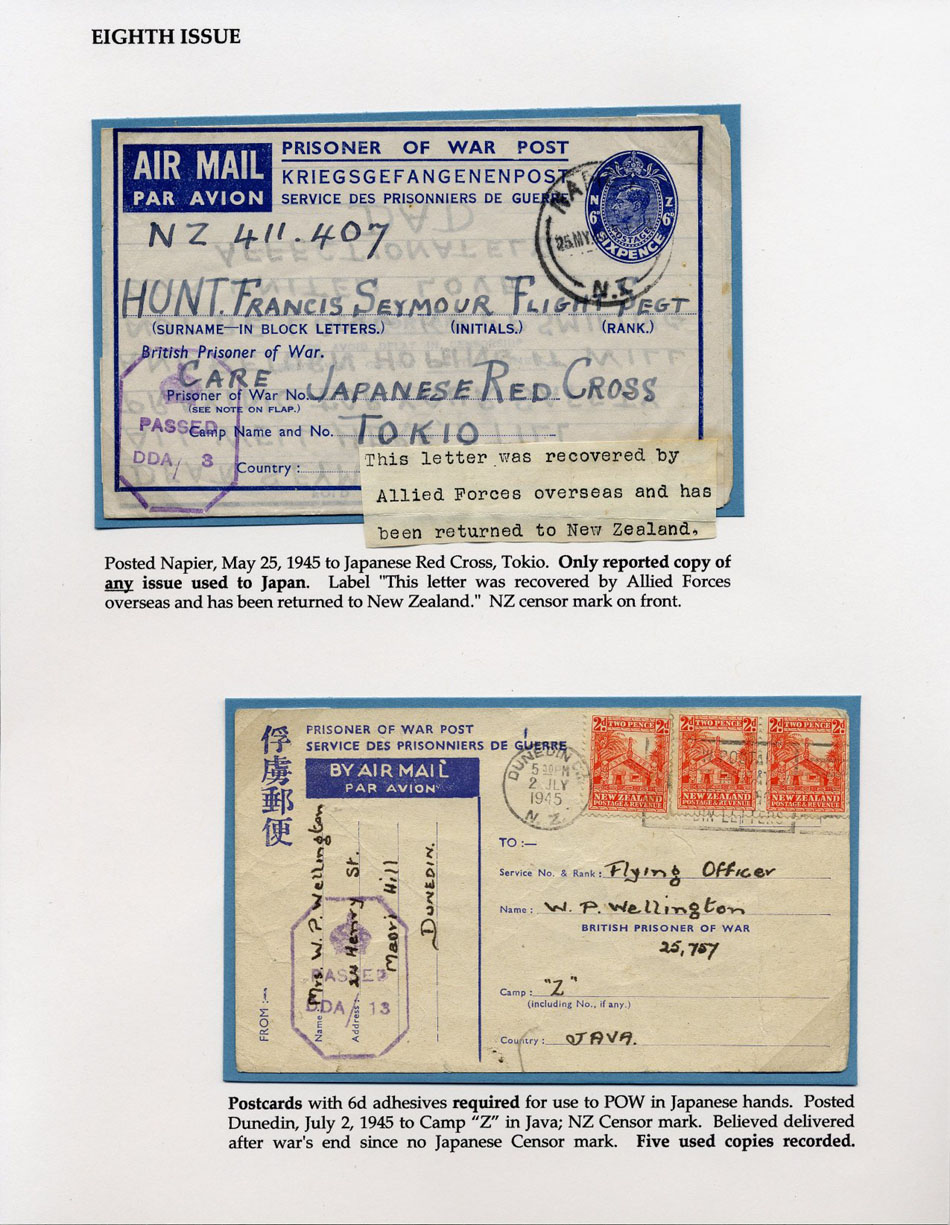 EIGHTH ISSUE
AIR MAIL
PAR AVION
PRISONER OF WAR POST
KRIEGSGEFANGENENPOST
SERVICE DES PRISONNIERS DE GUERRE
N Z
6D
6D
POSTAGE
SIXPENCE
25 MY
N.Z
NZ 411.407
HUNT. FRANCIS SEYMOUR FLIGHT SEGT
(SURNAME—IN BLOCK LETTERS.) (INITIALS.) (RANK.)
British Prisoner of War.
CARE JAPANESE RED CROSS
Prisoner of War No.
(SEE NOTE ON FLAP.)
PASSED
DDA/ 3
Camp Name and No. TOKIO
Country :
This letter was recovered by
Allied Forces overseas and has
been returned to New Zealand.
Posted Napier, May 25, 1945 to Japanese Red Cross, Tokio. Only reported copy of
any issue used to Japan. Label "This letter was recovered by Allied Forces
overseas and has been returned to New Zealand." NZ censor mark on front.
俘虜郵便
PRISONER OF WAR POST
SERVICE DES PRISONNIERS DE GUERRE
BY AIR MAIL
PAR AVION
DUNEDIN
5 30PM
2 JLY
1945
N. Z.
2d TWO PENCE 2d
NEW ZEALAND
POSTAGE & REVENUE
2d TWO PENCE 2d
NEW ZEALAND
POSTAGE & REVENUE
2d TWO PENCE 2d
NEW ZEALAND
POSTAGE & REVENUE
ON LETTERS
FROM :—
Name: Mrs W. P. Wellington
Address: 24 Henry St.
Maori Hill
DUNEDIN.
PASSED
DDA/ 13
TO :—
Service No. & Rank : Flying Officer
Name : W. P. Wellington
BRITISH PRISONER OF WAR
25,757
Camp : "Z"
(including No., if any.)
Country : JAVA.
Postcards with 6d adhesives required for use to POW in Japanese hands. Posted
Dunedin, July 2, 1945 to Camp “Z” in Java; NZ Censor mark. Believed delivered
after war's end since no Japanese Censor mark. Five used copies recorded.